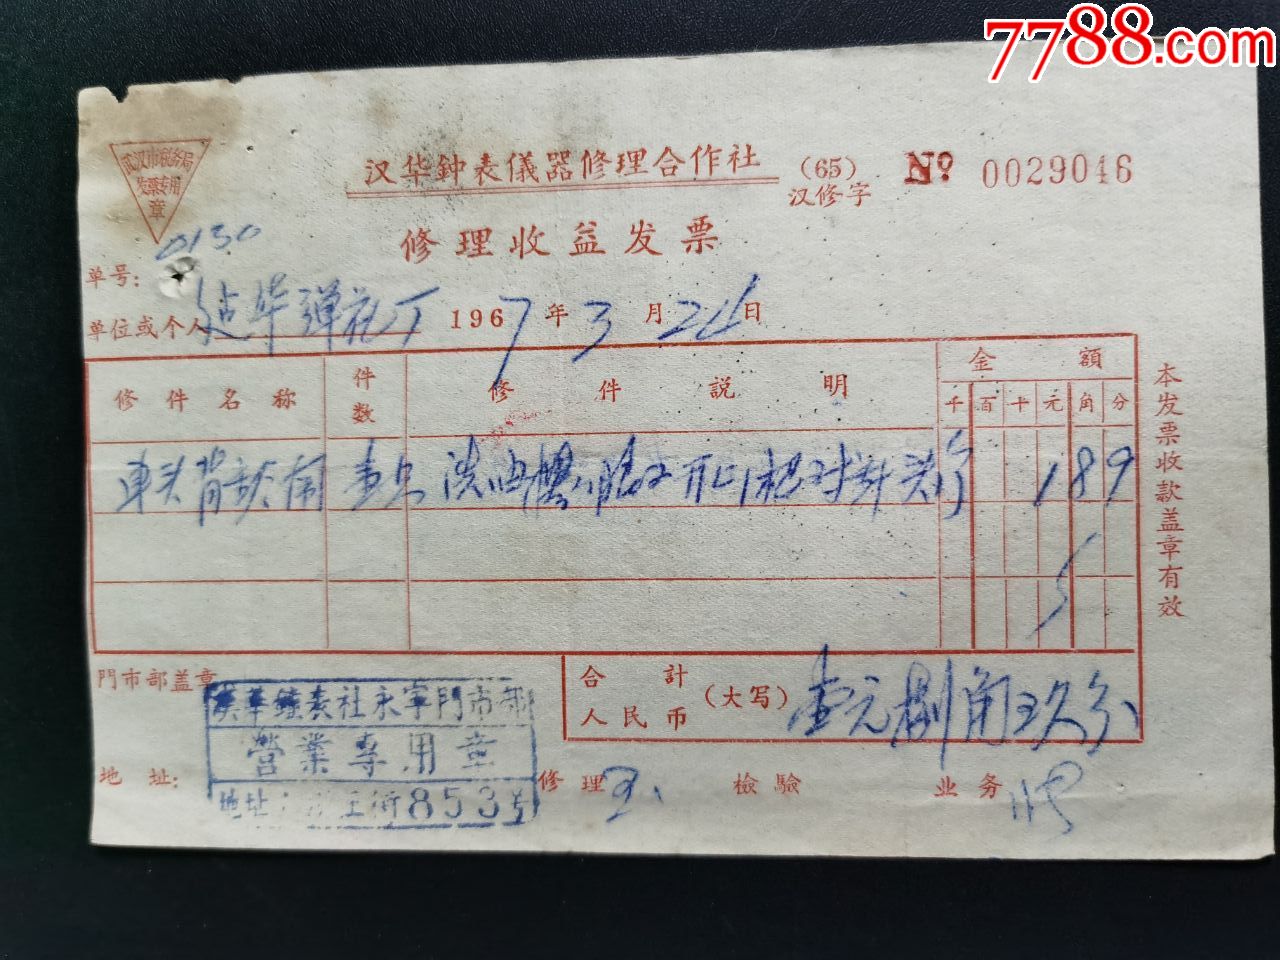 7788.com
武汉市税务局
发票专用
章
汉华钟表儀器修理合作社
(65)
汉修字
№ 0029046
修理收益发票
单号: 0130
单位或个人 建华弹花厂 1967年3月24日
修件名称 件数 修件説明 金額
千 百 十 元 角 分
壹只 189
合計
人民币
(大写) 壹元捌角玖分
本发票收款盖章有效
門市部盖章
漢華鐘表社永寧門市部
營業専用章
地址: 853号
地址:
修理 王 檢驗 业务